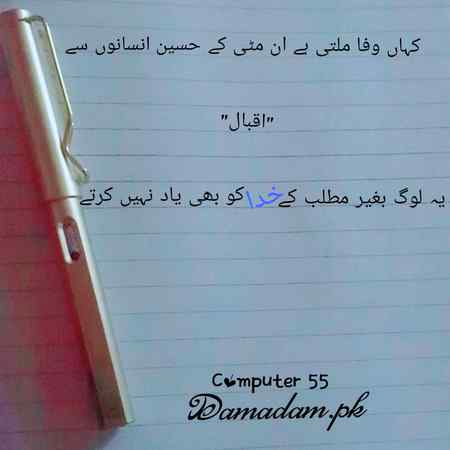 کہاں وفا ملتی ہے ان مٹی کے حسین انسانوں سے
"اقبال"
یہ لوگ بغیر مطلب کے خدا کو بھی یاد نہیں کرتے
Computer 55
Damadam.pk